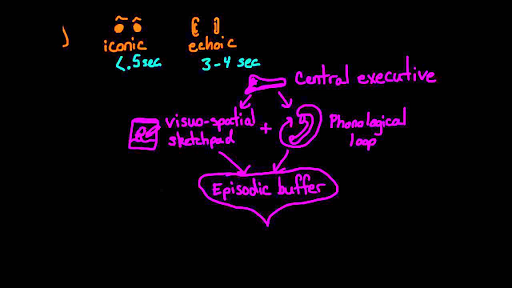 iconic
echoic
<.5 sec
3-4 sec
Central executive
visuo-spatial
sketchpad
+
Phonological
loop
Episodic buffer